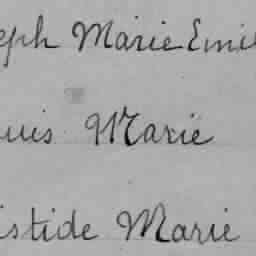 eph Marie Emi
uis Marie
istide Marie